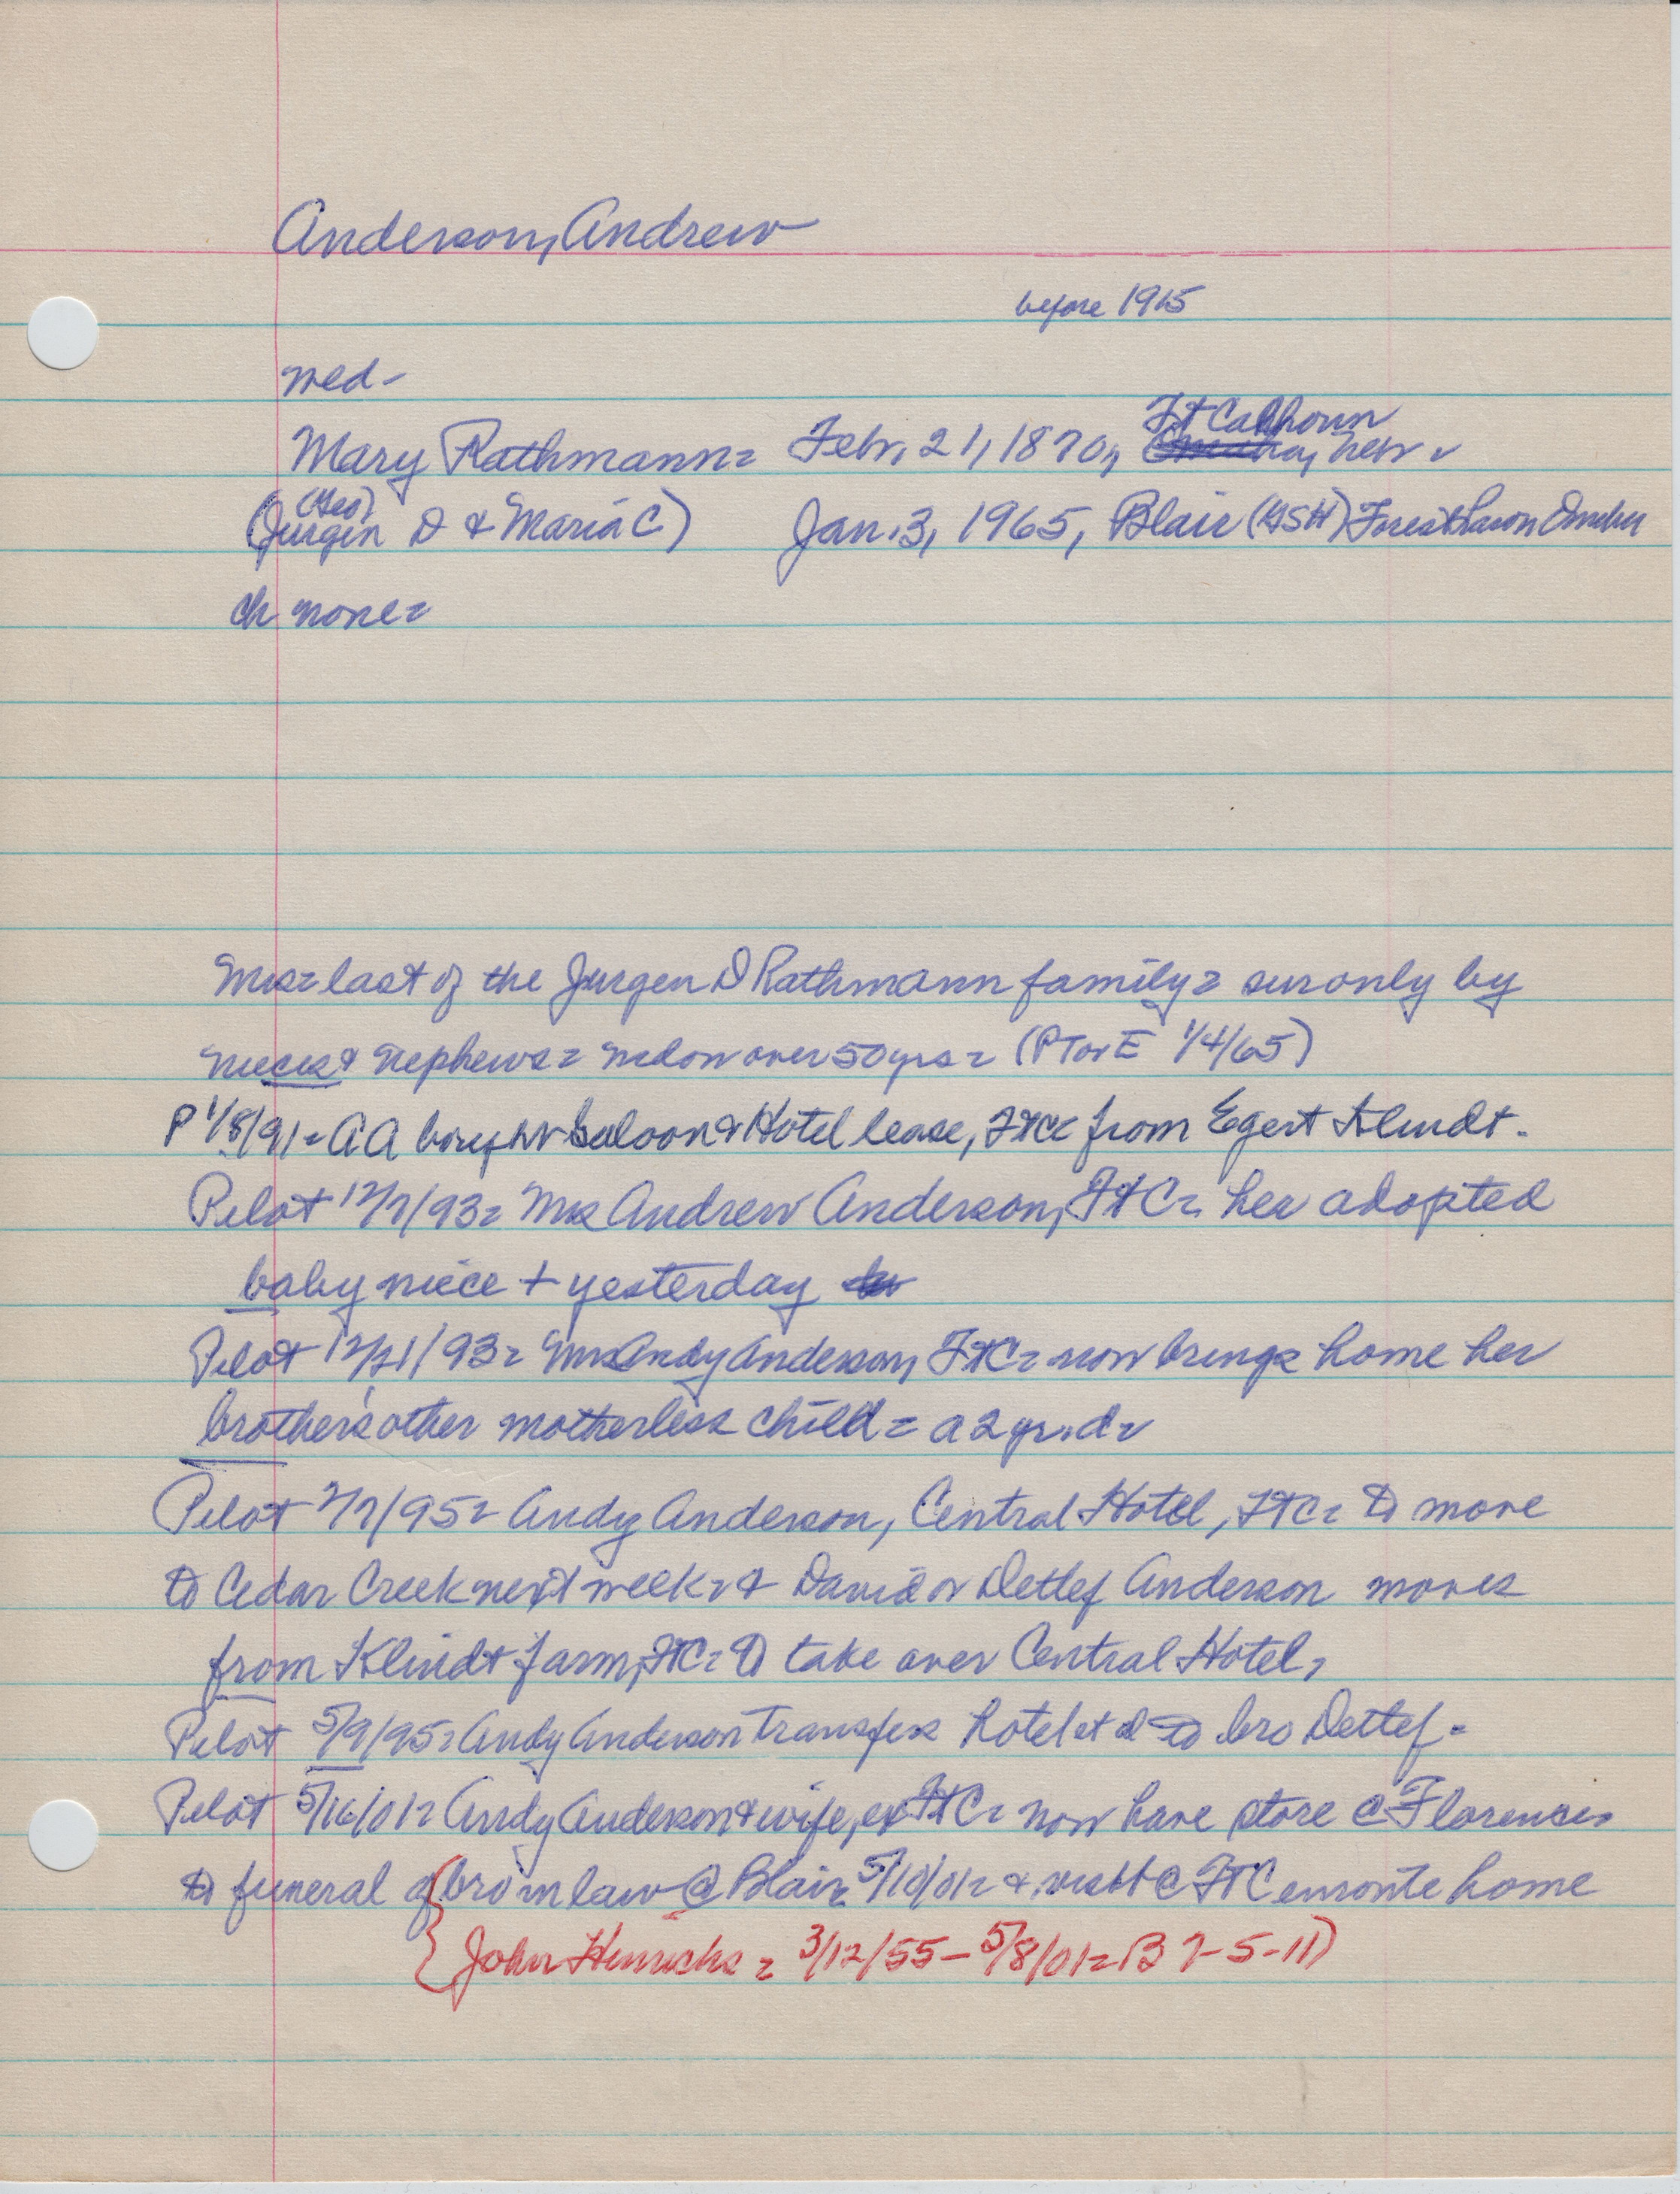 Anderson, Andrew
before 1915
wed-
Ft Calhoun
Mary Rathmann= Febr, 21, 1870, Omaha, Nebr.
(Geo)
(Jurgen D & Maria C) Jan. 3, 1965, Blair Forest Lawn Omaha
ch none=
Mrs= last of the Jurgen D Rathmann family= sur only by
nieces & nephews= widow over 50 yrs= (PT or E 1/4/65)
P 1/8/91= AA bought saloon & Hotel lease, FtC from Egert Klindt.
Pilot 12/7/93= Mrs Andrew Anderson, FtC= her adopted
baby niece + yesterday
Pilot 12/21/93= Mrs Andy Anderson, FtC= now brings home her
brother's other motherless child= a 2 yr. d=
Pilot 2/7/95= Andy Anderson, Central Hotel, FtC= to move
to Cedar Creek next week= & David or Detlef Anderson moves
from Klindt farm, FtC= to take over Central Hotel,
Pilot 5/9/95= Andy Anderson transfers hotel to bro Detlef-
Pilot 5/16/01= Andy Anderson & wife, ex FtC= now have store @ Florence.
to funeral of bro in law @ Blair 5/10/01= & visit @ FtC enroute home
{John Hinrichs= 3/12/55-5/8/01= B 7-5-11)